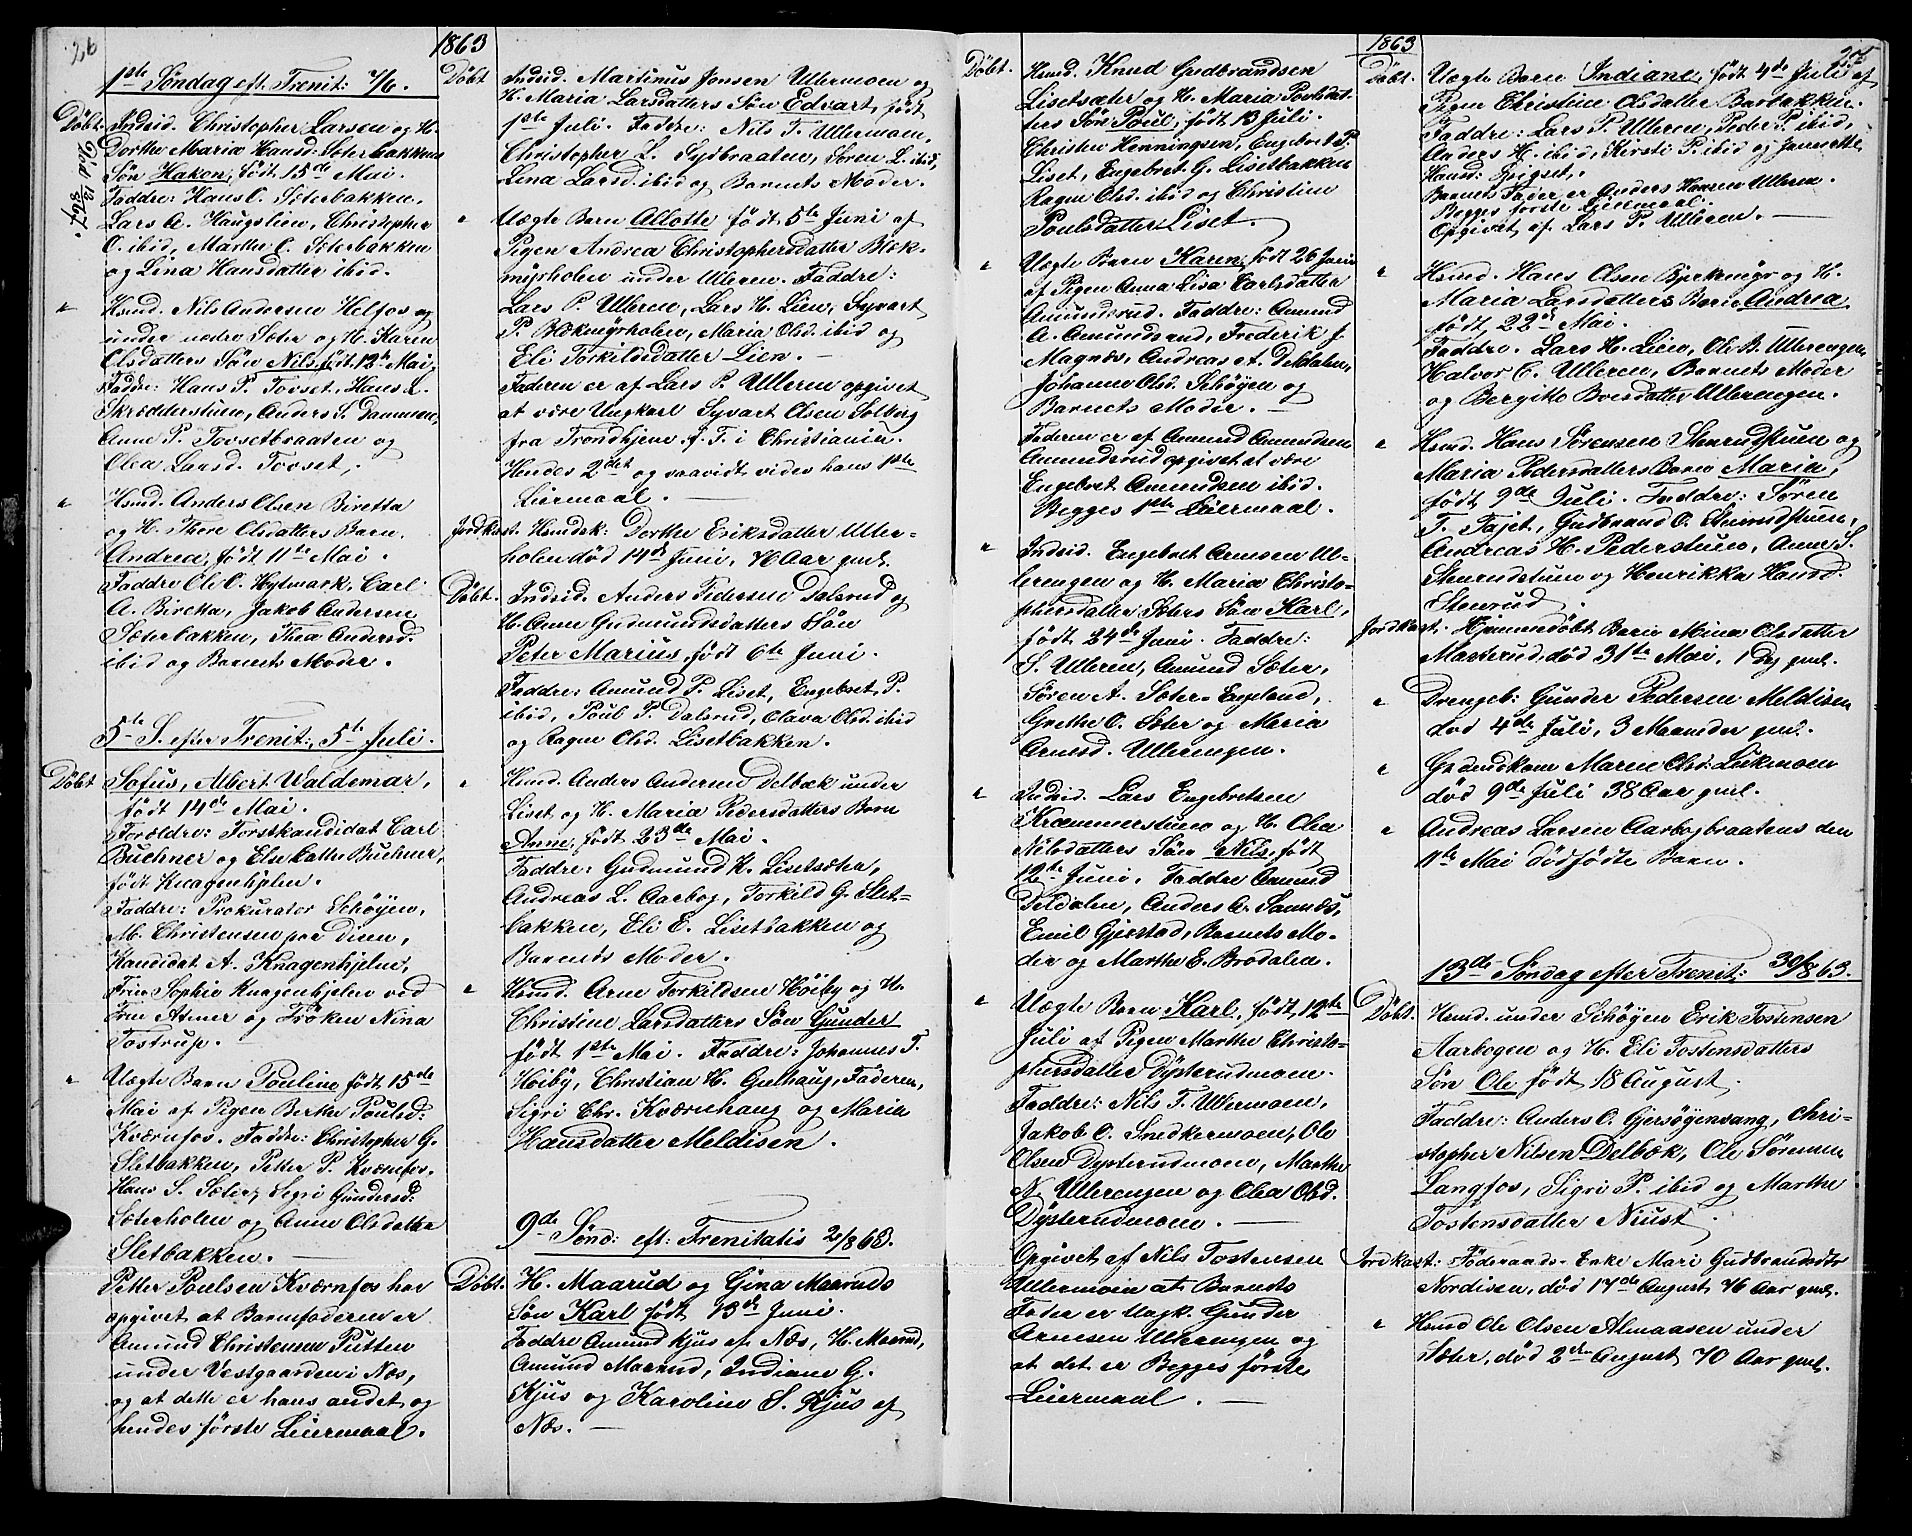 26
1863
1ste Søndag eft. Trenit: 7/6.
Døbt. Indsid. Christopher Larsen og H.
Dorthe Maria Hansd: Sæterbakken
Søn Hakon, født 15de Mai.
Faddre: Hans C. Sæterbakken,
Lars A. Haugslien, Christopher
O. ibid, Marthe C. Sæterbakken
og Lina Hansdatter ibid.
" Hsmd. Nils Andersen Helfos og
under nedre Sæter og H. Karen
Olsdatters Søn Nils, født 12te Mai,
Faddre: Hans P. Tovset, Hans L.
Skrædderstuen, Anders S. Danmen,
Anne P. Tovsetbraaten og
Olea Larsd. Tovset.
" Hsmd. Anders Olsen Biretta
og H. Thore Olsdatters Barn
Andrea, født 11te Mai.
Faddre Ole O. Hytmark, Carl
A. Biretta, Jakob Andersen
Sæterbakken, Thea Andersd.
ibid og Barnets Moder.
5te S. efter Trenit:, 5te Juli.
Døbt Sofus, Albert Waldemar,
født 14de Mai.
Forældre: Forstkandidat Carl
Buchner og Else Cathr Buchner,
født Knagenhjelm.
Faddre: Prokurator Schøyen,
M. Christensen paa Disen,
Kandidat A. Knagenhjelm,
Frue Sophie Knagenhjelm ved
Fru Atmer og Frøken Nina
Tostrup.
" Uægte Barn Pauline født 15de
Mai af Pigen Berthe Poulsd:
Kværnfos. Faddre: Christopher G.
Sletbakken, Petter P. Kværnfos,
Hans S. Sæter, Segri Gundersd:
Sæterholen og Anne Olsdatter
Sletbakken.
Petter Poulsen Kværnfos har
opgivet at Barnefaderen er
Amund Christensen Putten
under Vestgaarden i Næs,
og at dette er hans andet og
hendes første Leiermaal.
Døbt Indsid. Martinus Jonsen Ullermoen og
H. Maria Larsdatters Søn Edvart, født
1ste Juli. Faddre: Nils T. Ullermoen,
Christopher L. Sydbraaten, Søren L. ibid,
Lina Larsd. ibid og Barnets Moder.
" Uægte Barn Allotte født 5te Juni af
Pigen Andrea Christophersdatter Blæk-
myrholen under Ulleren. Faddre:
Lars P. Ulleren, Lars H. Lien, Syvart
P. Blækmyrholen, Maria Olsd. ibid og
Eli Torkildsdatter Lien.
Faderen er af Lars P. Ulleren opgivet
at være Ungkarl Syvart Olsen Solberg
fra Trondhjem p. T. i Christiania.
Hendes 2det og saavidt vides hans 1ste
Leiermaal.
Jordkast. Hsmdsk: Dorthe Eriksdatter Uller-
holen død 14de Juni, 76 Aar gml.
Døbt. Indsid. Anders Pedersen Dalsrud og
H. Anne Gudmundsdatters Søn
Peter Marius, født 6te Juni.
Faddre: Amund P. Liset, Engebret P.
ibid, Poul P. Dalsrud, Olava Olsd. ibid
og Ragne Olsd. Lisetbakken.
" Hsmd. Anders Andersen Delbæk under
Liset og H. Maria Pedersdatters Barn
Anne, født 23de Mai.
Faddre: Gudmund K. Lisetsæter,
Andreas L. Aarbog, Torkild G. Slet-
bakken, Eli E. Lisetbakken og
Barnets Moder.
" Hsmd. Arne Torkildsen Høiby og H.
Christine Larsdatters Søn Gunder
født 1ste Mai. Faddre: Johannes T.
Høiby, Christian H. Gulhaug, Faderen,
Sigri Chr. Kværnhaug og Maria
Hansdatter Meldisen.
9de Sønd: eft: Trenitatis 2/8 63.
Døbt: H. Maarud og Gina Maaruds
Søn Karl født 13de Juni.
Faddre Amund Kjus af Næs, H. Maarud,
Amund Maarud, Indiane G.
Kjus og Karoline S. Kjus af
Næs.
1863
27
Døbt. Hsmd. Knud Gudbrandsen
Lisetsæter og H. Maria Poulsdat-
ters Søn Poul, født 13 Juli.
Christen Henningsen, Engebret P.
Liset, Engebret G. Lisetbakken
Ragne Olsd. ibid og Christine
Poulsdatter Liset.
" Uægte Barn Karen, født 26 Juni
af Pigen Anna Lisa Carlsdatter
Amundsrud. Faddre: Amund
A. Amundsrud, Frederik J.
Magnæs, Andreas A. Deldalen,
Johanne Olsd. Schøyen og
Barnets Moder.
Faderen er af Amund Amundsen
Amundsrud opgivet at være
Engebret Amundsen ibid.
Begges 1ste Leiermaal.
" Indsid. Engebret Arnesen Ul-
lerengen og H. Maria Christo-
phersdatter Sæters Søn Karl,
født 24de Juni. Faddre:
S. Ulleren, Amund Sæter,
Søren A. Sæter-Engelund,
Grethe O. Sæter og Maria
Arnesd. Ullerengen.
" Indsid. Lars Engebretsen
Kræmmerstuen og H. Olea
Nilsdatters Søn Nils, født
12te Juni. Faddre Amund
Deldalen, Anders O. Samnæs,
Emil Gjerstad, Barnets Mo-
der og Marthe E. Brodalen.
" Uægte Barn Karl, født 12te
Juli af Pigen Marthe Christo-
phersdatter Dysterudmoen.
Faddre: Nils T. Ullermoen,
Jakob O. Snedkermoen, Ole
Olsen Dysterudmoen, Marthe
N. Ullerengen og Olea Olsd.
Dysterudmoen.
Opgivet af Nils Tostensen
Ullermoen at Barnets
Fader er Ungk. Gunder
Arnesen Ullerengen og
at det er Begges første
Leiermaal.
Døbt. Uægte Barn Indiane, født 4de Juli af
Pigen Christine Olsdatter Barbakken.
Faddre: Lars P. Ulleren, Peder P. ibid,
Anders H. ibid, Kirsti P. ibid og Jannette
Hansd: Spigset.
Barnets Fader er Anders Hansen Ulleren.
Begges første Leiermaal.
Opgivet af Lars P. Ulleren.
" Hsmd. Hans Olsen Bjerkemyr og H.
Maria Larsdatters Barn Andrea
født 22de Mai.
Faddre. Lars H. Lien, Ole B. Ullerengen,
Halvor O. Ulleren, Barnets Moder
og Bergitte Boesdatter Ullerengen.
" Hsmd. Hans Sørensen Stenrudstuen og
Maria Pedersdatters Barn Maria,
født 9de Juli. Faddre: Søren
T. Tajet, Gudbrand O. Stenrudstuen,
Andreas H. Pederstuen, Anne S.
Stenrudstuen og Henrikka Hansd.
Stenrud.
Jordkast. Hjemmedøbt Barn Mina Olsdatter
Maskerud, død 31te Mai, 1 Dag gml.
" Drengeb: Gunder Pedersen Meldisen
død 4de Juli, 3 Maaneder gml.
" Gaardmdskone Maren Olsd. Lækmoen
død 9de Juli 38 Aar gml.
" Andreas Larsen Aarbogbraatens den
11te Mai dødfødte Barn.
13de Søndag efter Trenit: 30/8 63.
Døbt. Hsmd. under Schøyen Erik Tostensen
Aarbogen og H. Eli Tostensdatters
Søn Ole født 18 August.
Faddre: Anders O. Gjersøyensvang, Chri-
stopher Nilsen Delbæk, Ole Sørensen
Langfos, Sigri P. ibid og Marthe
Tostensdatter Niust.
Jordkast: Føderaads-Enke Mari Gudbrandsdtr
Nordisen, død 17de August 76 Aar gml.
" Hsmd Ole Olsen Almaasen under
Sæter, død 2den August 70 Aar gml.